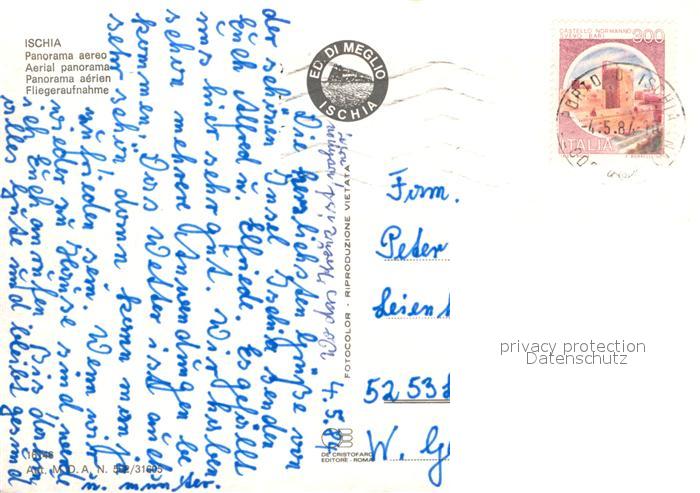 ISCHIA
Panorama aereo
Aerial panorama
Panorama aérien
Fliegeraufnahme
ED. DI MEGLIO
ISCHIA
CASTELLO NORMANNO
SVEVO - BARI
300
ITALIA
PORTO D'ISCHIA
4.5.84
4.5.84
Die herzlichsten Grüße von
der schönen Insel Ischia senden
Euch Alfred u. Elfriede. Es gefällt
uns hier sehr gut. Wir haben
schon mehrere Anwendungen be-
kommen. Das Wetter ist auch
sehr schön, dann kann man ja
zufrieden sein. Wenn wir
wieder zu Hause sind werde
ich Euch anrufen. Bis dahin
alles Gute und bleibt gesund
u. munter.
Wo das Kreuz ist wohnen wir
FOTOCOLOR - RIPRODUZIONE VIETATA
DE CRISTOFARO
EDITORE - ROMA
Firm.
Peter
5253
W. G
privacy protection
Datenschutz
Aut. M.D.A. N.